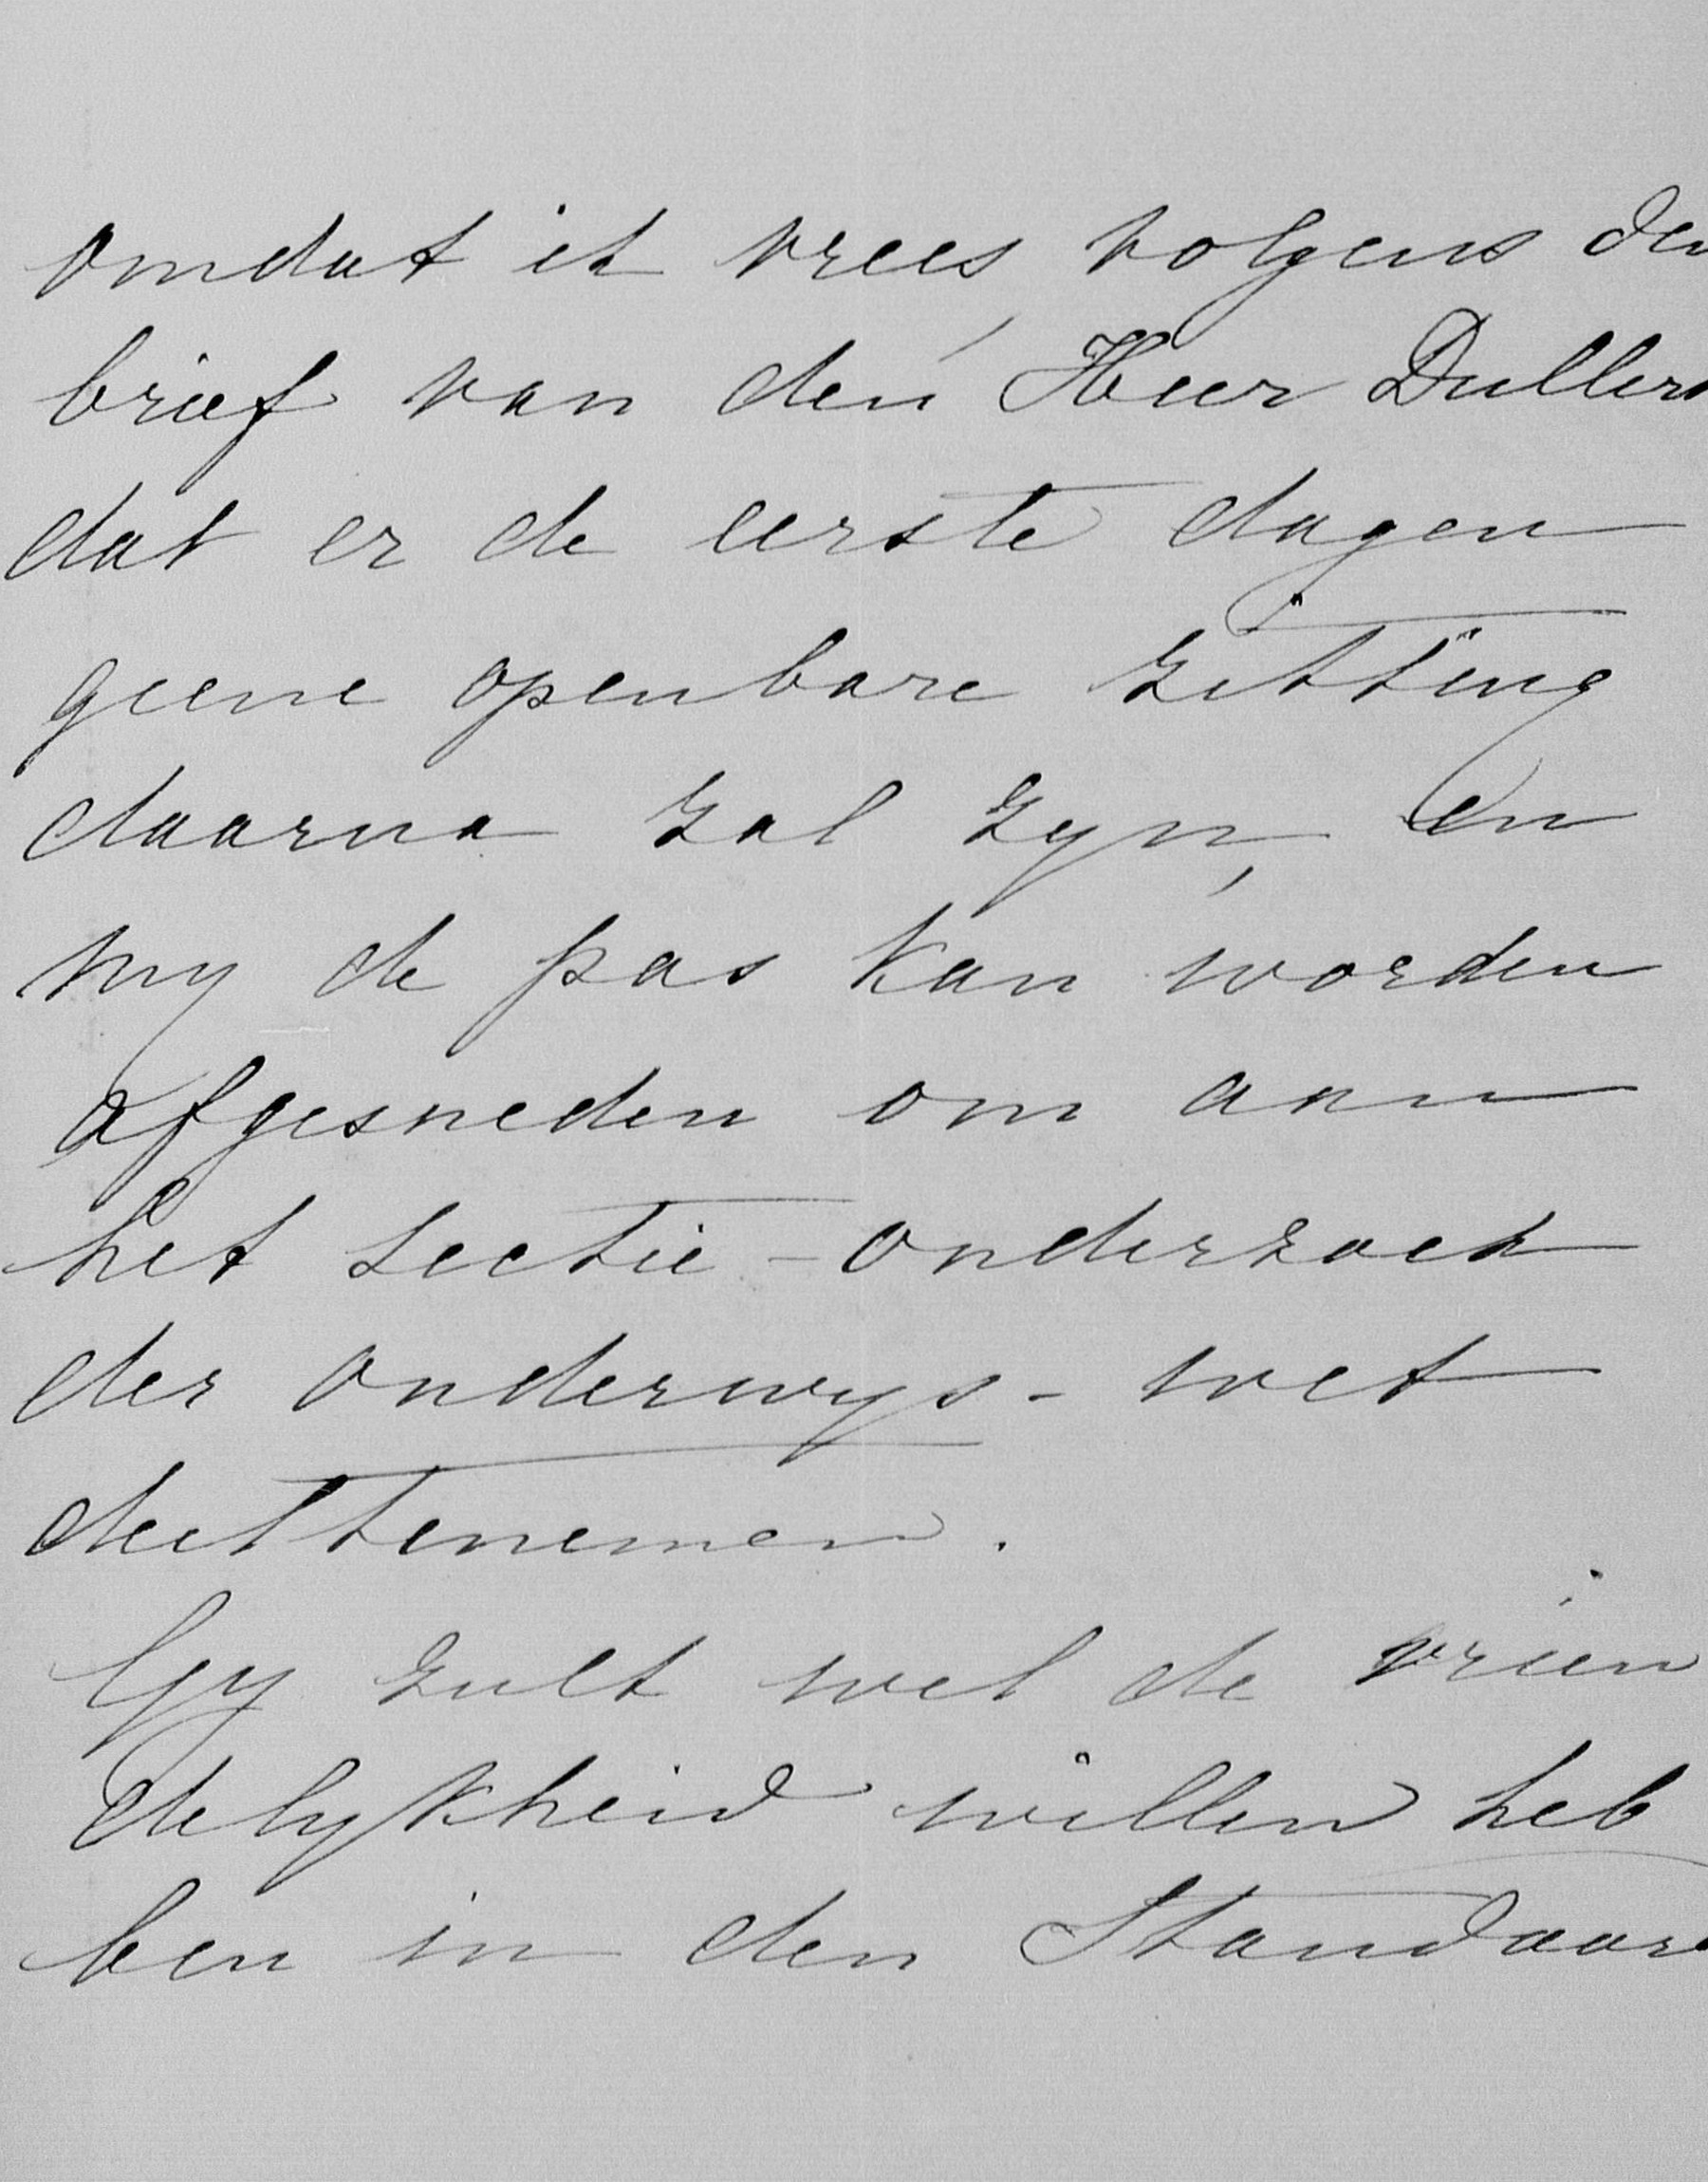 omdat ik vrees, volgens den
brief van den Heer Dullert
dat er de eerste dagen
geene openbare zitting
daarna zal zyn, en
my de pas kan worden
afgesneden om aan
het sectie-onderzoek
der onderwys-wet
deeltenemen.
Gy zult wel de vrien
delykheid willen heb
ben in den Standaard